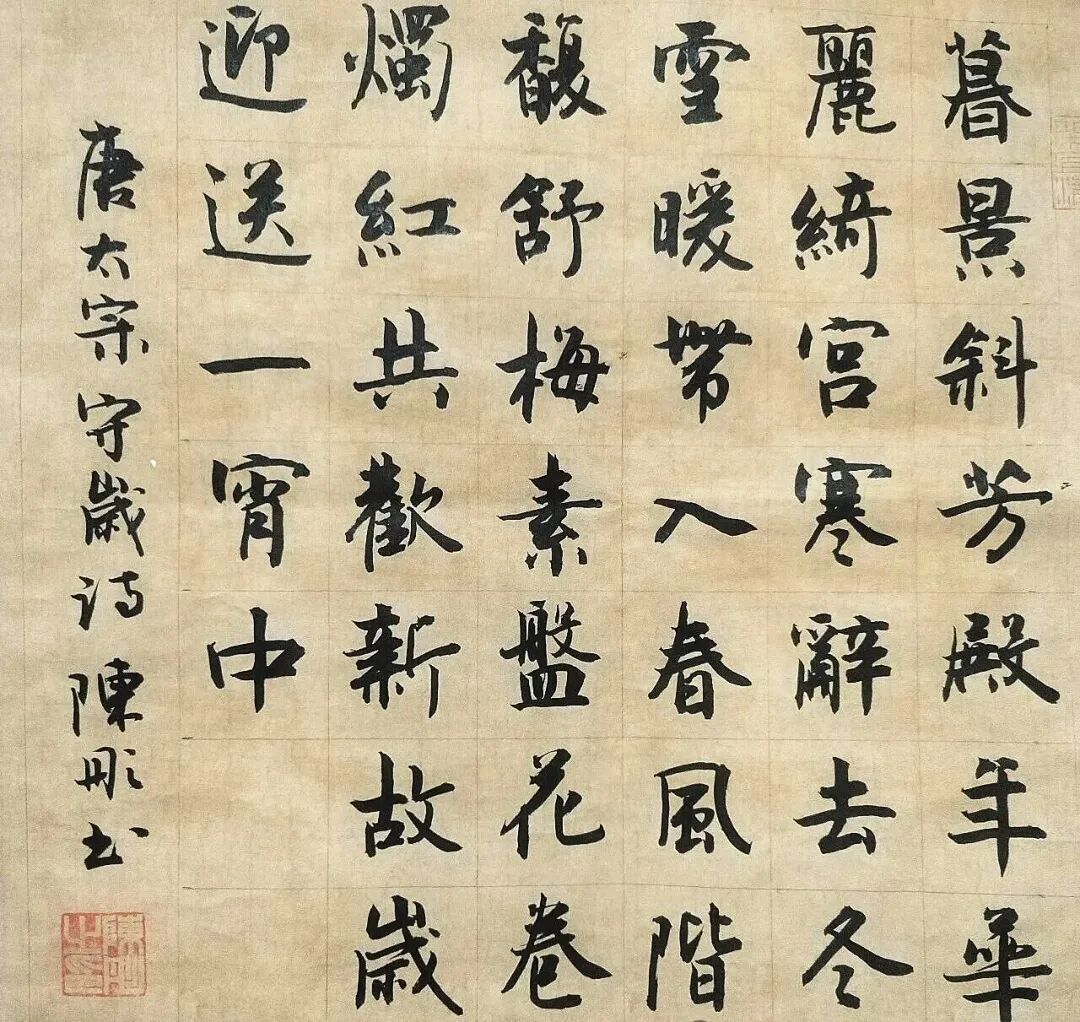 暮景斜芳殿年華
麗綺宮寒辭去冬
雪暖帶入春風階
馥舒梅素盤花卷
燭紅共歡新故歲
迎送一宵中
唐太宗守歲诗 陳彤书